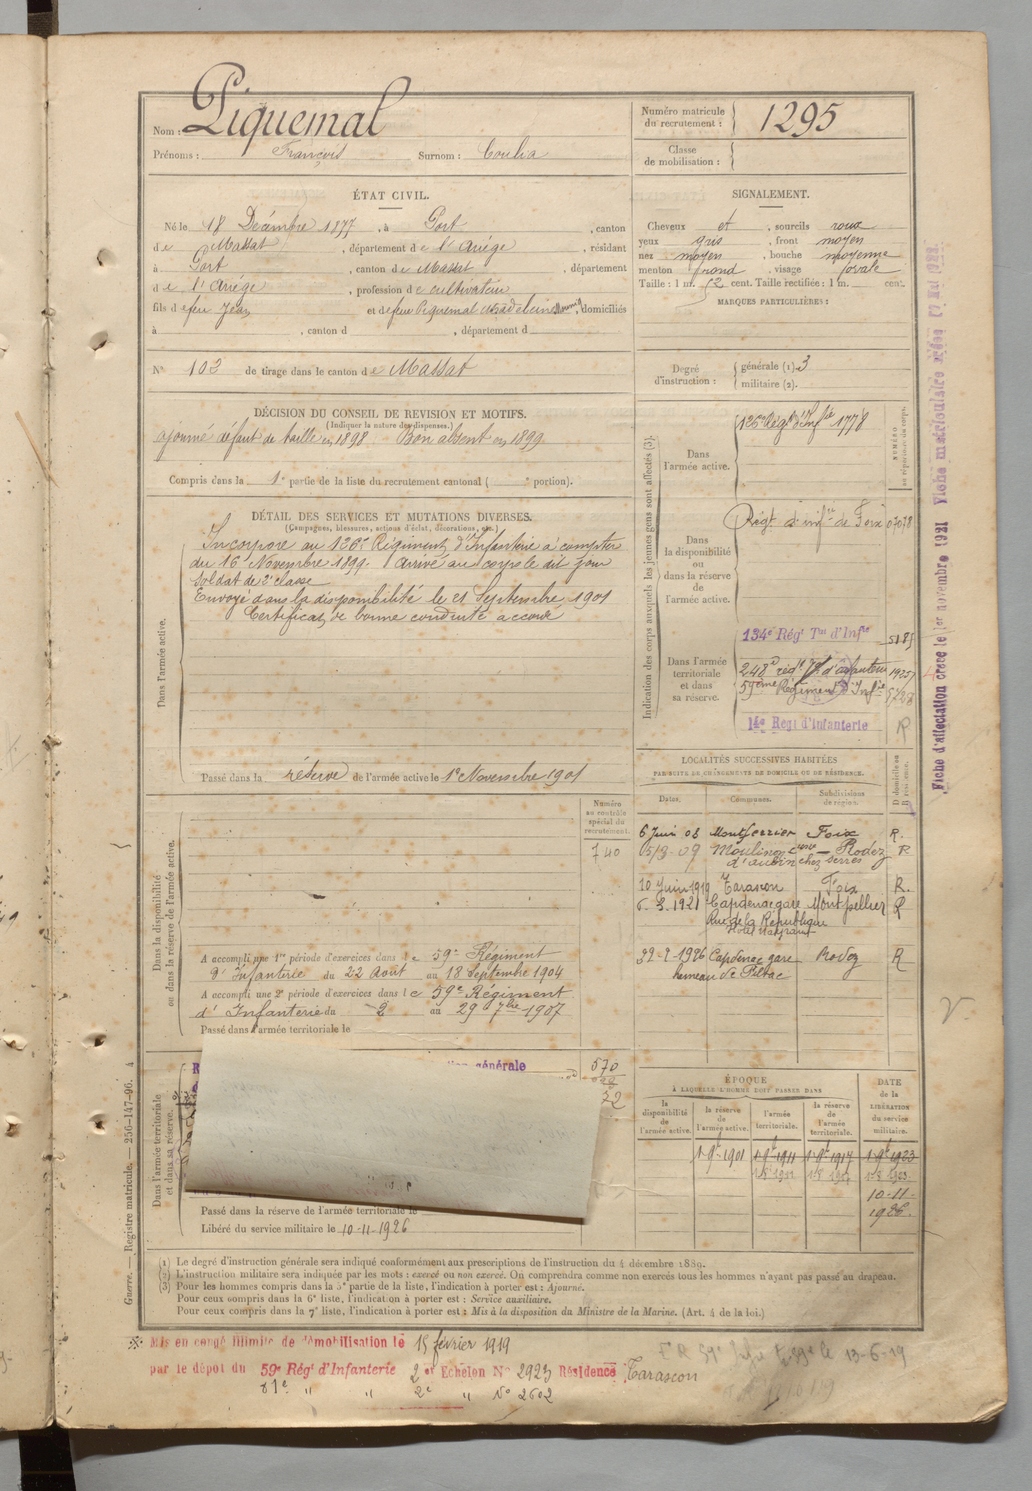 Nom : Piquemal
Prénoms : François Surnom : Coulia
Numéro matricule du recrutement : 1295
Classe de mobilisation :
ÉTAT CIVIL.
Né le 18 Décembre 1877, à Port, canton
de Massat, département de l'Ariége, résidant
à Port, canton de Massat, département
de l'Ariége, profession de cultivateur
fils de feu Jean et de feu Piquemal Madeleine, domiciliés
à , canton d , département d
SIGNALEMENT.
Cheveux et , sourcils roux
yeux gris , front moyen
nez moyen , bouche moyenne
menton rond , visage ovale
Taille : 1 m. 52 cent. Taille rectifiée : 1 m. cent.
MARQUES PARTICULIÈRES :
N° 102 de tirage dans le canton de Massat
Degré d'instruction : générale (1) 3
militaire (2).
DÉCISION DU CONSEIL DE REVISION ET MOTIFS.
(Indiquer la nature des dispenses.)
ajourné défaut de taille en 1898 Bon absent en 1899
Compris dans la 1e partie de la liste du recrutement cantonal ( e portion).
DÉTAIL DES SERVICES ET MUTATIONS DIVERSES.
(Campagnes, blessures, actions d'éclat, décorations, etc.)
Dans l'armée active.
Incorporé au 126e Régiment d'Infanterie à compter
du 16 Novembre 1899. Arrivé au corps le dit jour
Soldat de 2e classe
Envoyé dans la disponibilité le 21 Septembre 1901
Certificat de bonne conduite accordé
Passé dans la réserve de l'armée active le 1er Novembre 1901
Indication des corps auxquels les jeunes gens sont affectés (3).
NUMÉRO au répertoire du corps.
Dans l'armée active.
126e Régt d'Infie 1778
Dans la disponibilité ou dans la réserve de l'armée active.
Régt d'infie de Foix 07078
Dans l'armée territoriale et dans sa réserve.
134e Régt Tal d'Infie
248e régt d'infanterie
59ème Régiment d'Infie
14e Régt d'Infanterie R
LOCALITÉS SUCCESSIVES HABITÉES
PAR SUITE DE CHANGEMENTS DE DOMICILE OU DE RÉSIDENCE.
Dates. Communes. Subdivisions de région. D domicile ou R résidence.
6 Juin 08 Montferrier Foix R.
Rodez R
d'aubin chez Serres
10 Juin 1919 Tarascon Foix R.
6. 8. 1921 Capdenac gare Montpellier R
Rue de la République
22-2-1926 Capdenac gare Rodez R
hameau de
Dans la disponibilité ou dans la réserve de l'armée active.
Numéro au contrôle spécial du recrutement.
740
A accompli une 1re période d'exercices dans le 59e Régiment
d'Infanterie du 22 Août au 18 Septembre 1904
A accompli une 2e période d'exercices dans le 59e Régiment
d'Infanterie du 2 au 29 7bre 1907
Passé dans l'armée territoriale le
Dans l'armée territoriale et dans sa réserve.
générale
570
22
Passé dans la réserve de l'armée territoriale le
Libéré du service militaire le 10-11-1926
ÉPOQUE
À LAQUELLE L'HOMME DOIT PASSER DANS
la disponibilité de l'armée active. la réserve de l'armée active. l'armée territoriale. la réserve de l'armée territoriale. DATE de la LIBÉRATION du service militaire.
1-9bre 1901 1-9bre 1911 1-9bre 1917 1-9bre 1923
10-11-
1926.
(1) Le degré d'instruction générale sera indiqué conformément aux prescriptions de l'instruction du 4 décembre 1889.
(2) L'instruction militaire sera indiquée par les mots : exercé ou non exercé. On comprendra comme non exercés tous les hommes n'ayant pas passé au drapeau.
(3) Pour les hommes compris dans la 5e partie de la liste, l'indication à porter est : Ajourné.
Pour ceux compris dans la 6e liste, l'indication à porter est : Service auxiliaire.
Pour ceux compris dans la 7e liste, l'indication à porter est : Mis à la disposition du Ministre de la Marine. (Art. 4 de la loi.)
Guerre. — Registre matricule. — 256-147-96. 4
Mis en congé illimité de démobilisation le 15 février 1919
par le dépôt du 59e Régt d'Infanterie 2e Echelon N° 2923 Résidence Tarascon
2e " N° 2602
13-6-19
Fiche d'affectation créée le 1er novembre 1921